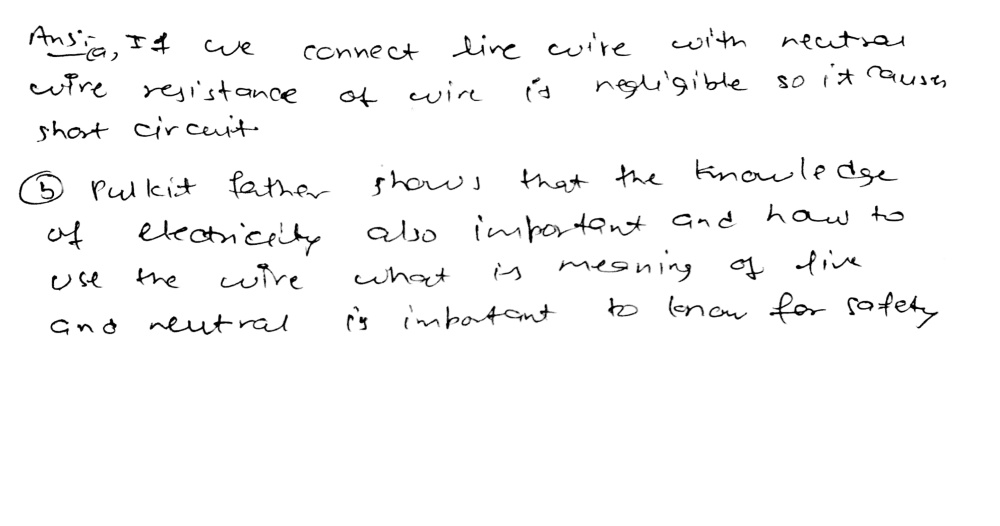 Ans:- a, If we connect live wire with neutral
wire resistance of wire is negligible so it causes
short circuit.
b) Pulkit father shows that the knowledge
of electricity also important and how to
use the wire what is meaning of live
and neutral is important to know for safety